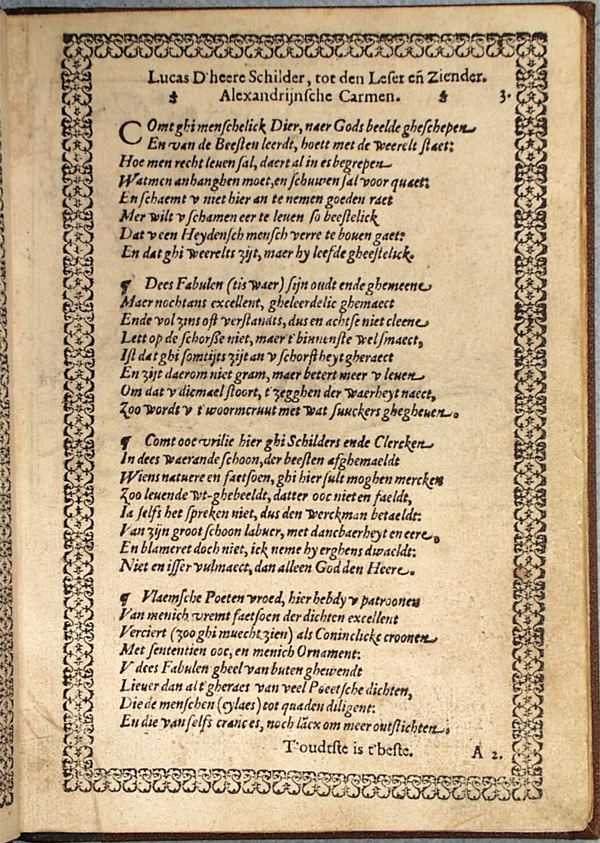 Lucas D'heere Schilder, tot den Leser eñ Ziender.
Alexandrijnsche Carmen. 3.
COmt ghi menschelick Dier, naer Gods beelde gheschepen
En van de Beesten leerdt, hoett met de weerelt staet:
Hoe men recht leuen sal, daert al in es begrepen
Watmen anhanghen moet, en schuwen sal voor quaet:
En schaemt v niet hier an te nemen goeden raet
Mer wilt v schamen eer te leuen so beestelick
Dat v een Heydensch mensch verre te bouen gaet:
En dat ghi weerelts zijt, maer hy leefde gheestelick.
¶ Dees Fabulen (tis waer) sijn oudt ende ghemeene
Maer nochtans excellent, gheleerdelic ghemaect
Ende vol zins oft verstandts, dus en achtse niet cleene
Lett op de schorsse niet, maer t'binnenste wel smaect,
Ist dat ghi somtijts zijt an v schorftheyt gheraect
En zijt daerom niet gram, maer betert meer v leuen
Om dat v diemael stoort, t'zegghen der waerheyt naect,
Zoo wordt v t'woormcruut met wat suuckers ghegheuen.
¶ Comt ooc vrilic hier ghi Schilders ende Clercken
In dees waerande schoon, der beesten afghemaeldt
Wiens natuere en faetsoen, ghi hier sult moghen mercken
Zoo leuende wt-ghebeeldt, datter ooc niet en faeldt,
Ia selfs het spreken niet, dus den werckman betaeldt:
Van zijn groot schoon labuer, met danckbaerheyt en eere,
En blameret doch niet, ick neme hy erghens dwaeldt:
Niet en isser vulmaect, dan alleen God den Heere.
¶ Vlaemsche Poeten vroed, hier hebdy v patroonen
Van menich vremt faetsoen der dichten excellent
Verciert (zoo ghi muecht zien) als Conincklicke croonen
Met sententien ooc, en menich Ornament:
V dees Fabulen gheel van buten ghewendt
Lieuer dan al t'gheraes van veel Poëetsche dichten,
Die de menschen (eylaes) tot quaden diligent:
En die van selfs cranc es, noch läcx om meer outstichten.
T'oudtste is t'beste. A 2.